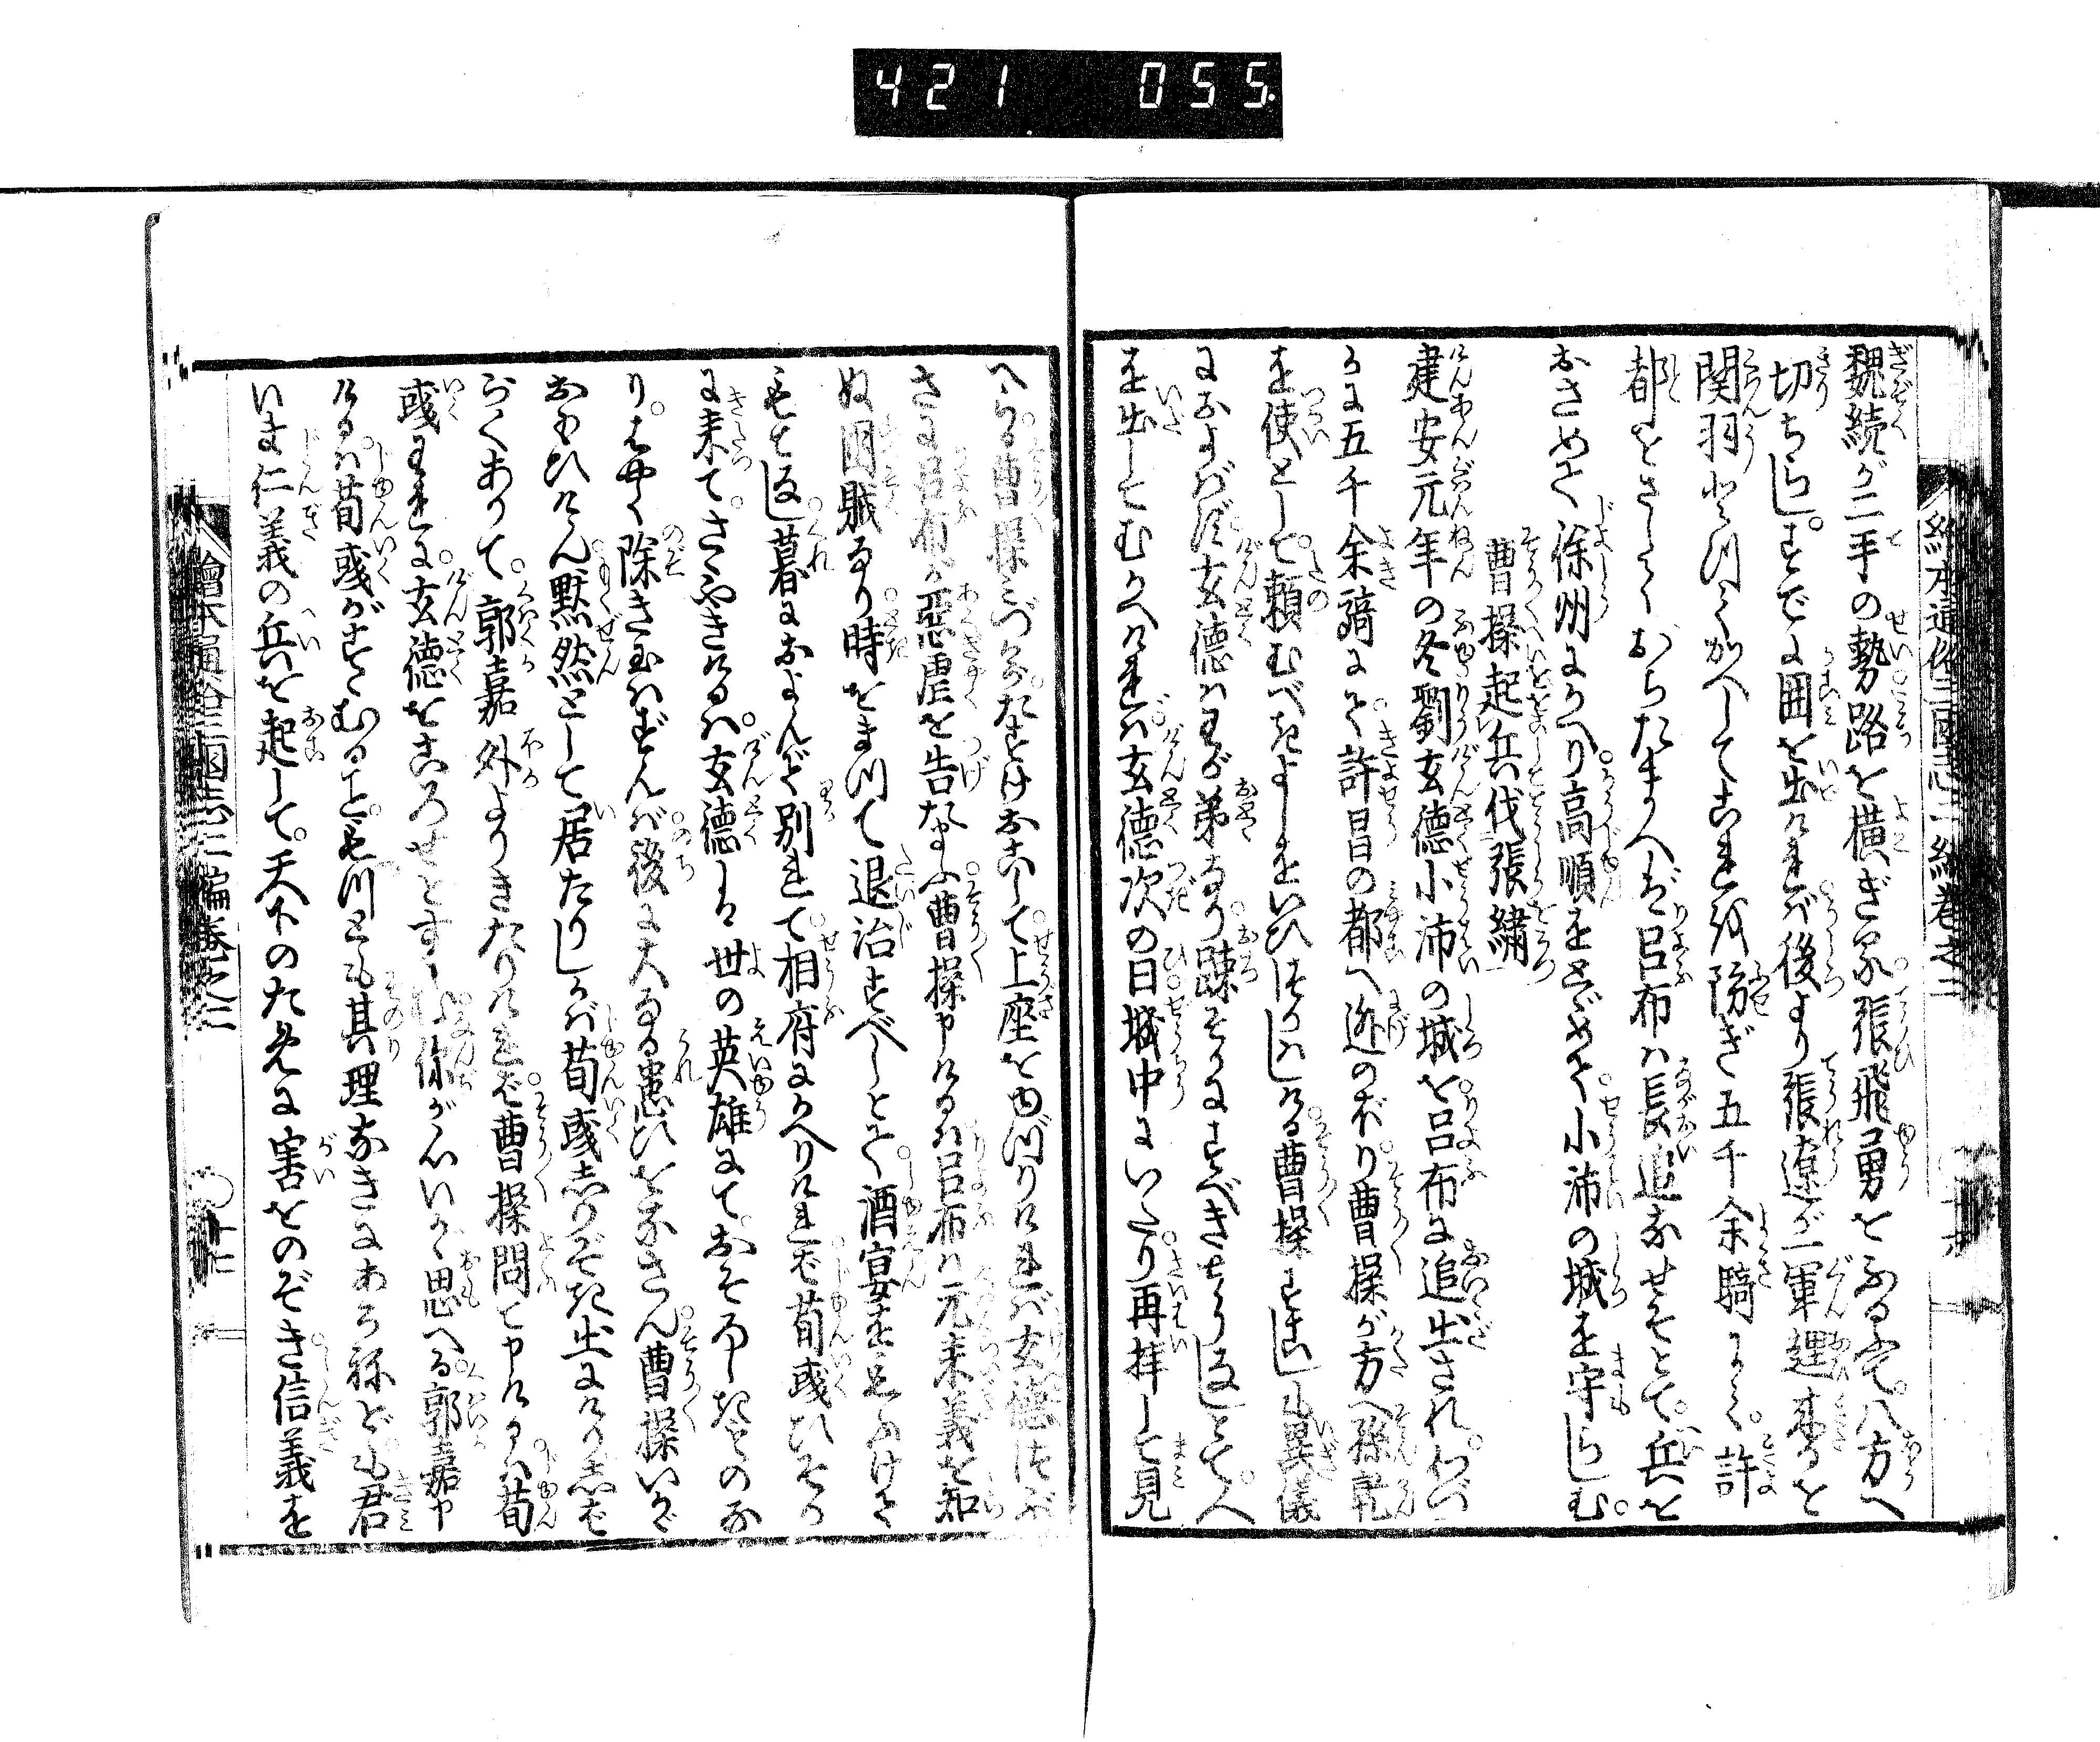 421 055
繪本通俗三國志二編卷之二
魏続が二手の勢路を横ぎる張飛勇をふるて八方へ
切ちらしすでに囲を出ければ後より張遼が一軍埋来るを
関羽とつてかへしてこれを防ぎ五千余騎にて許
都をさしておちたまへば呂布は長追なせそとて兵を
おさめて徐州にかへり高順をとゞめて小沛の城を守らしむ
曹操起兵伐張繡
建安元年の冬劉玄徳小沛の城を呂布に追出されわづ
かに五千余騎にて許昌の都へ迯のぼり曹操が方へ孫乾
を使として頼むべきよしをいひつかはしける曹操すこしも異儀
におよばず玄徳はわが弟なり踈そかにすべきやうなしとて人
を出してむかへければ玄徳次の日城中にいたり再拝して見
へける曹操みづからたすけおこして上座をゆづりければ玄徳つぶ
さに呂布が悪虐を告たまふ曹操申けるは呂布は元来義を知
ぬ国賊なり時をまつて退治すべしとて酒宴をまふけさ
も返し暮におよんで別れて相府にかへりければ荀彧ひそか
に来てさゝやきけるは玄徳しは世の英雄にておそろしきものな
りはやく除き玉はずんば後に大なる患ひをなさん曹操いかゞ
おもひけん黙然として居たりしかば荀彧しりぞき出にけりしば
らくあつて郭嘉外よりきたりければ曹操問て申けるは荀
彧われに玄徳をころせとすゝむ你が心いかゞ思へる郭嘉申
けるは荀彧がすゝむること尤とも其理なきにあらねども君
いま仁義の兵を起して天下のために害をのぞき信義を
繪本通俗三國志二編卷之二
十七